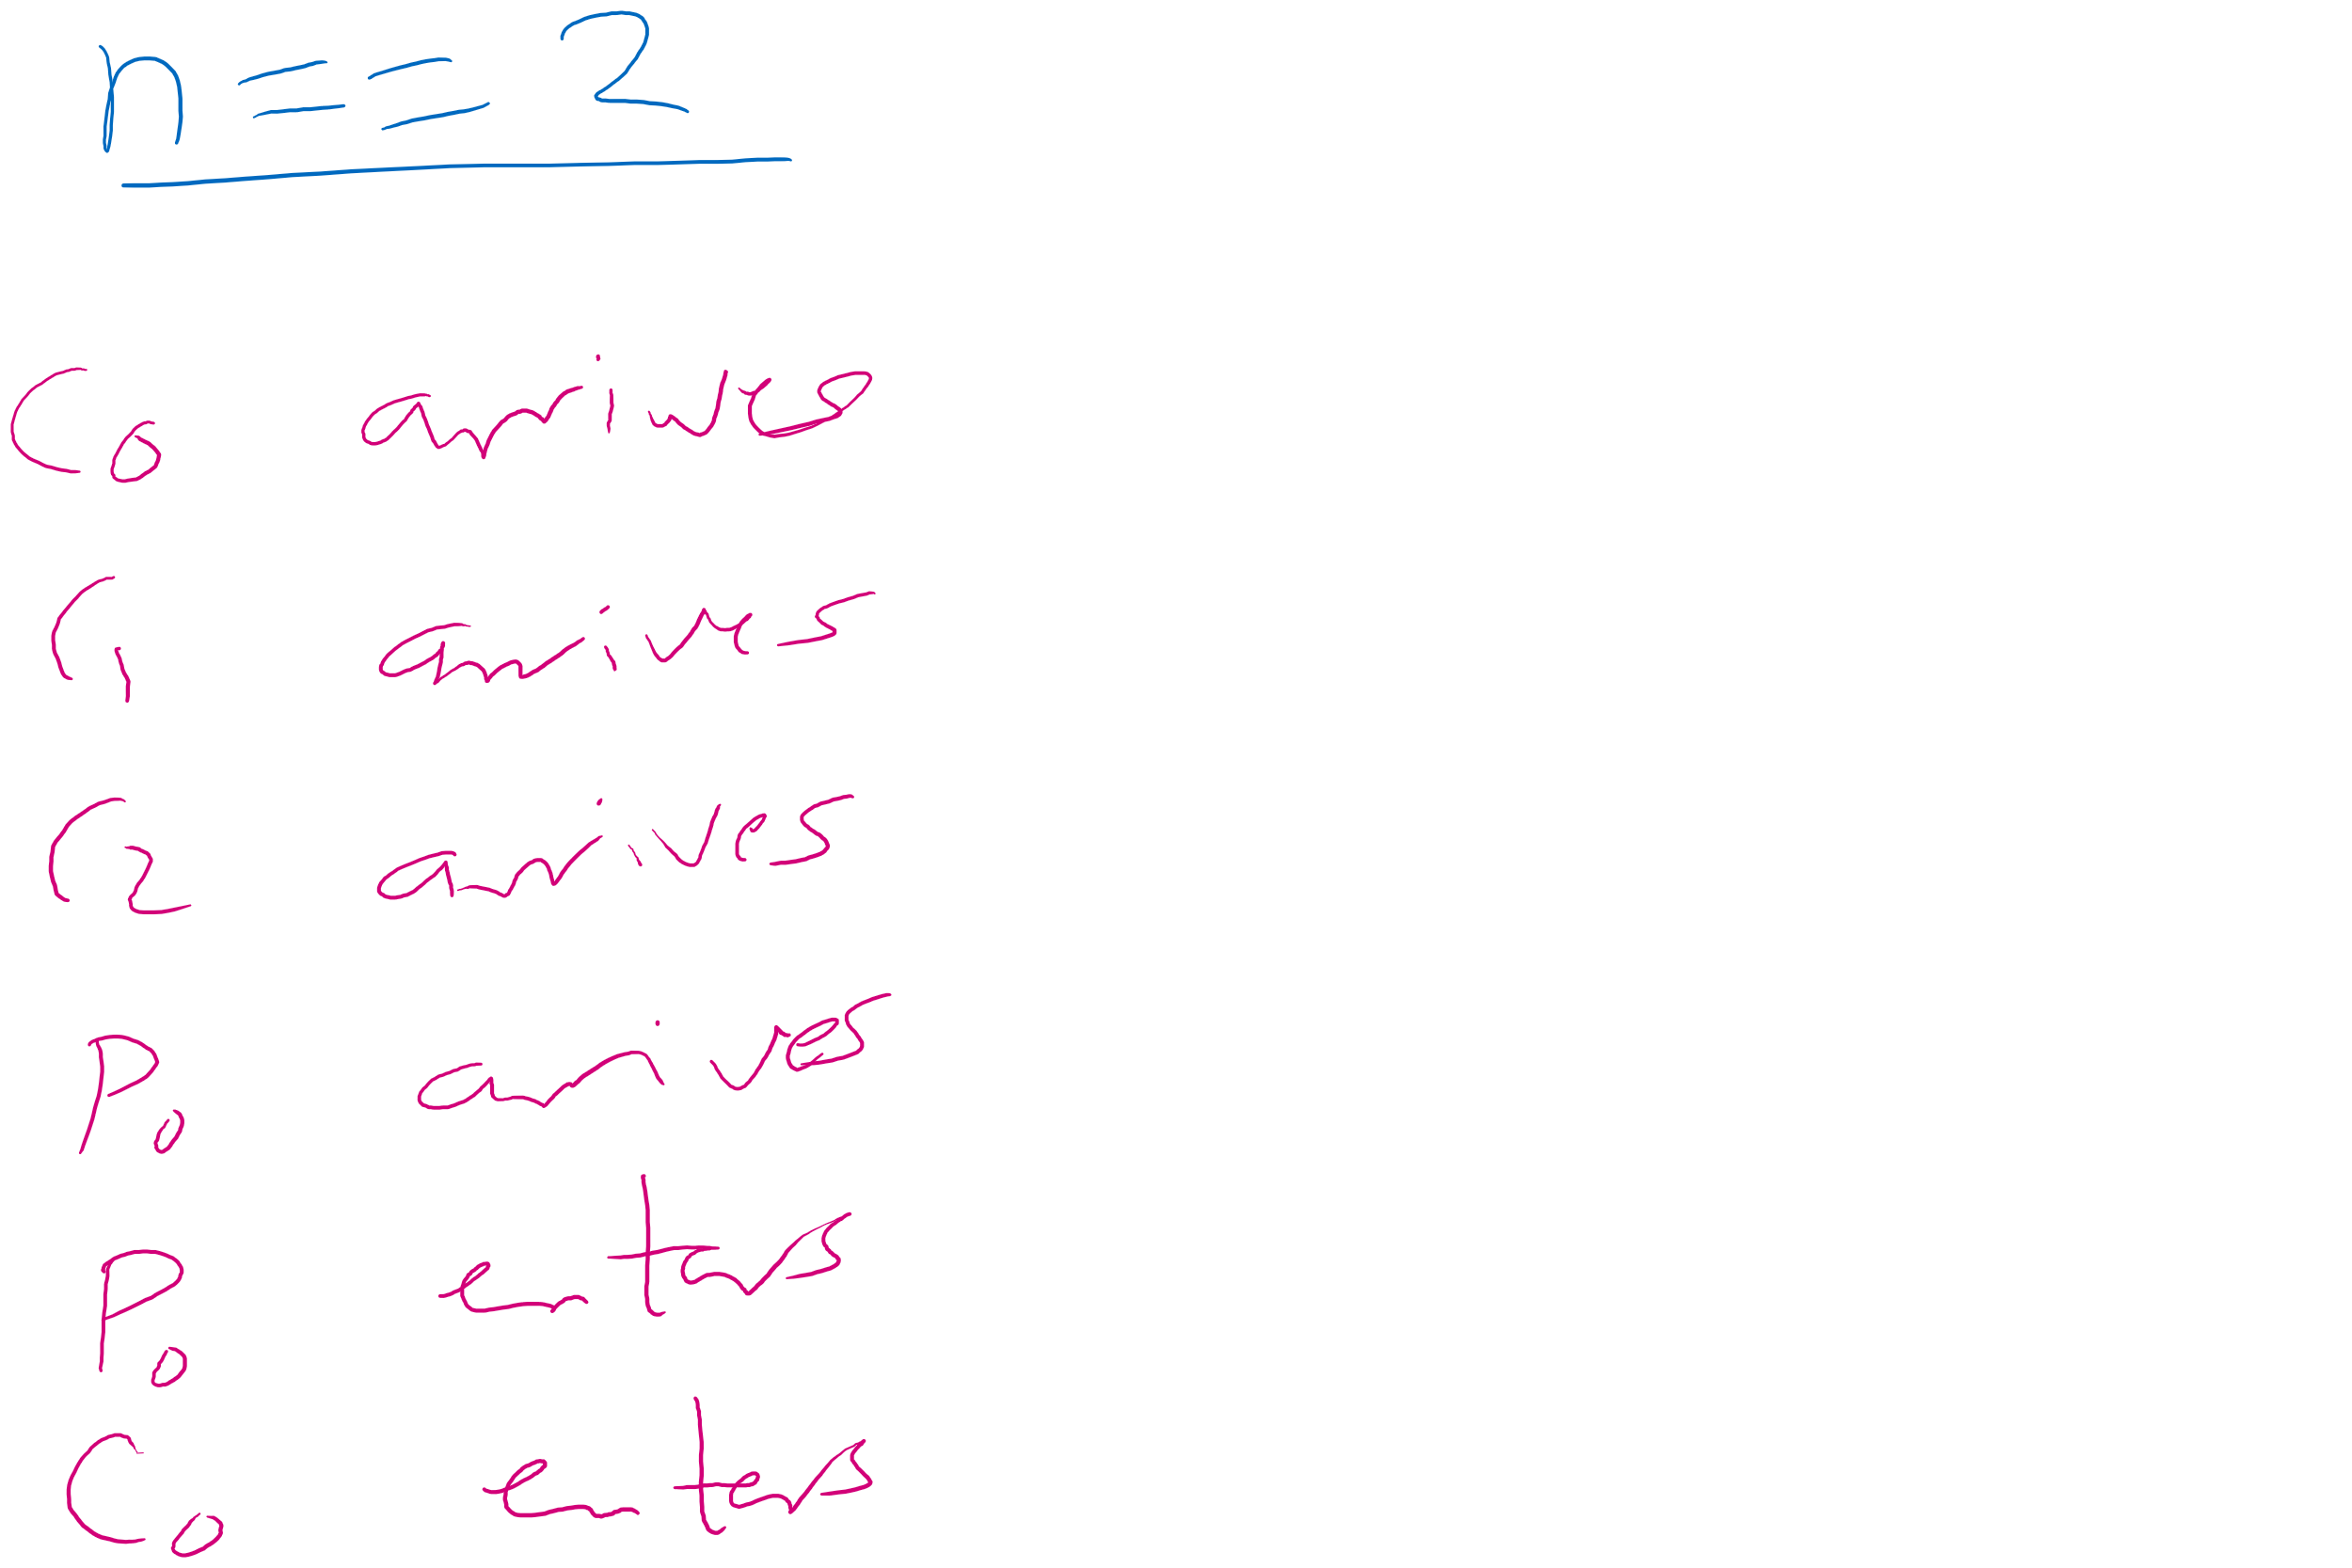 n == 2
C0 arrives
C1 arrives
C2 arrives
P0 arrives
P0 enters
C0 enters